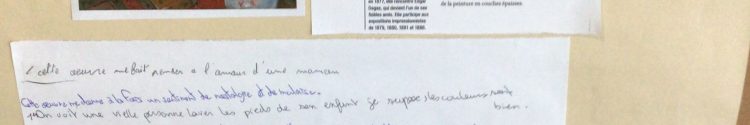 en 1877, elle rencontre Edgar
Degas, qui devient l'un de ses
fidèles amis. Elle participe aux
expositions impressionnistes
de 1879, 1880, 1881 et 1886.
de la peinture en couches épaisses.
cette œuvre me fait penser a l'amour d'une maman
Cette oeuvre me donne à la fois un sentiment de nostalgie et de
On voit une vielle personne laver les pieds de son enfant je suppose, les couleurs sont
bien.